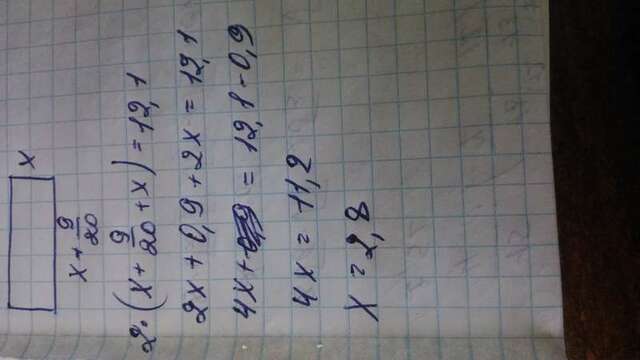 x
x + 9/20
2·(x + 9/20 + x) = 12,1
2x + 0,9 + 2x = 12,1
4x + = 12,1 - 0,9
4x = 11,2
x = 2,8